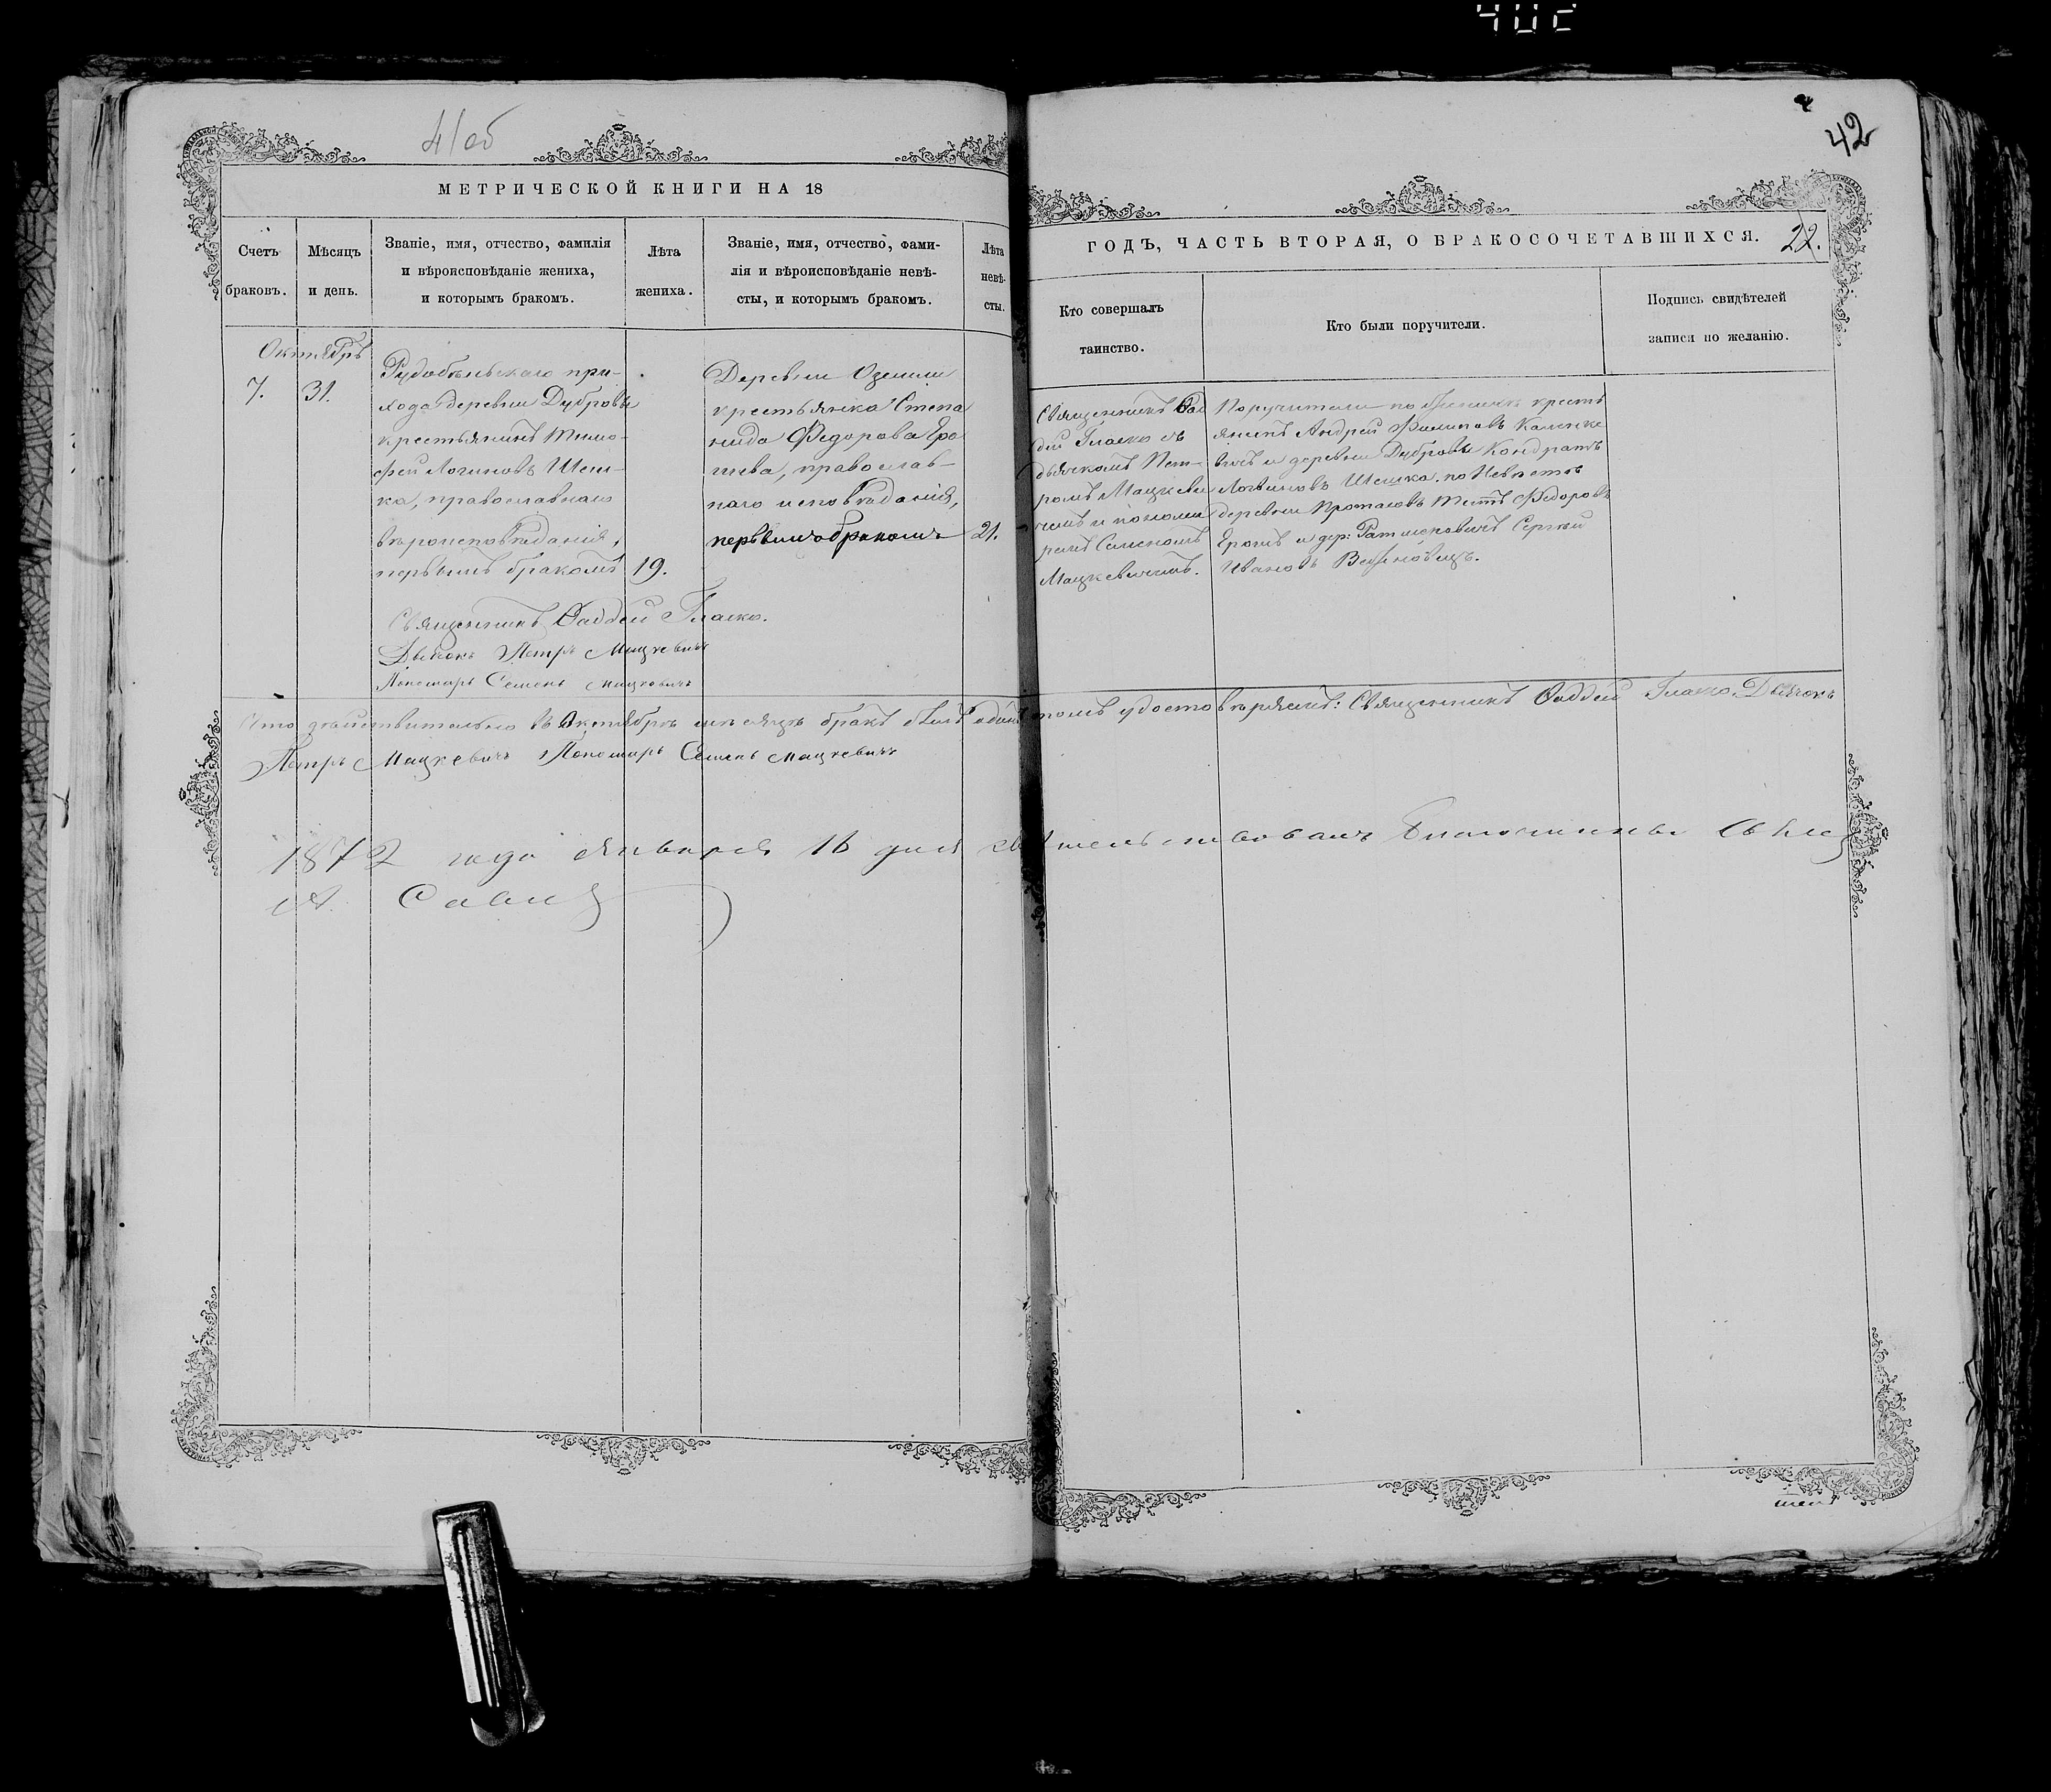 41об
42
МЕТРИЧЕСКОЙ КНИГИ НА 18
ГОДЪ, ЧАСТЬ ВТОРАЯ, О БРАКОСОЧЕТАВШИХСЯ. 22.
Счетъ
браковъ.
Мѣсяцъ
и день.
Званіе, имя, отчество, фамилія
и вѣроисповѣданіе жениха,
и которымъ бракомъ.
Лѣта
жениха.
Званіе, имя, отчество, фами-
лія и вѣроисповѣданіе невѣ-
сты, и которымъ бракомъ.
Лѣта
невѣ-
сты.
Кто совершалъ
таинство.
Кто были поручители.
Подпись свидѣтелей
записи по желанію.
Октябрь
7.
31.
Рудобѣльскаго при-
хода деревни Дубровы
крестьянинъ Тимо-
фей Логиновъ Шеш-
ка, православнаго
вѣроисповѣданія,
первымъ бракомъ
19.
Деревни
крестьянка Степа
нида Федорова
православ-
наго исповѣданія,
первымъ бракомъ
21.
Священникъ Фад
дей Гласко съ
дьячкомъ Пет-
ромъ Мацкеви
чемъ и понома
ремъ Семеномъ
Мацкевичемъ.
Поручители по женихѣ крестъ
янинъ Андрей Филиповъ
и деревни Дубровы Кондратъ
Логиновъ Шешка. по Невѣстѣ
деревни Титъ Федоровъ
и дер: Сергѣй
Ивановъ
Священникъ Фаддей Гласко.
Дьячокъ Петръ Мацкевичъ
Пономарь Семенъ Мацкевичъ
Что дѣйствительно въ Октябрѣ мѣсяцѣ бракъ былъ одинъ томъ удостовѣряемъ: Священникъ Фаддей Гласко. Дьячокъ
Петръ Мацкевичъ Пономарь Семенъ Мацкевичъ
1872 года января 16 дня свидѣтельствовалъ Благочинный